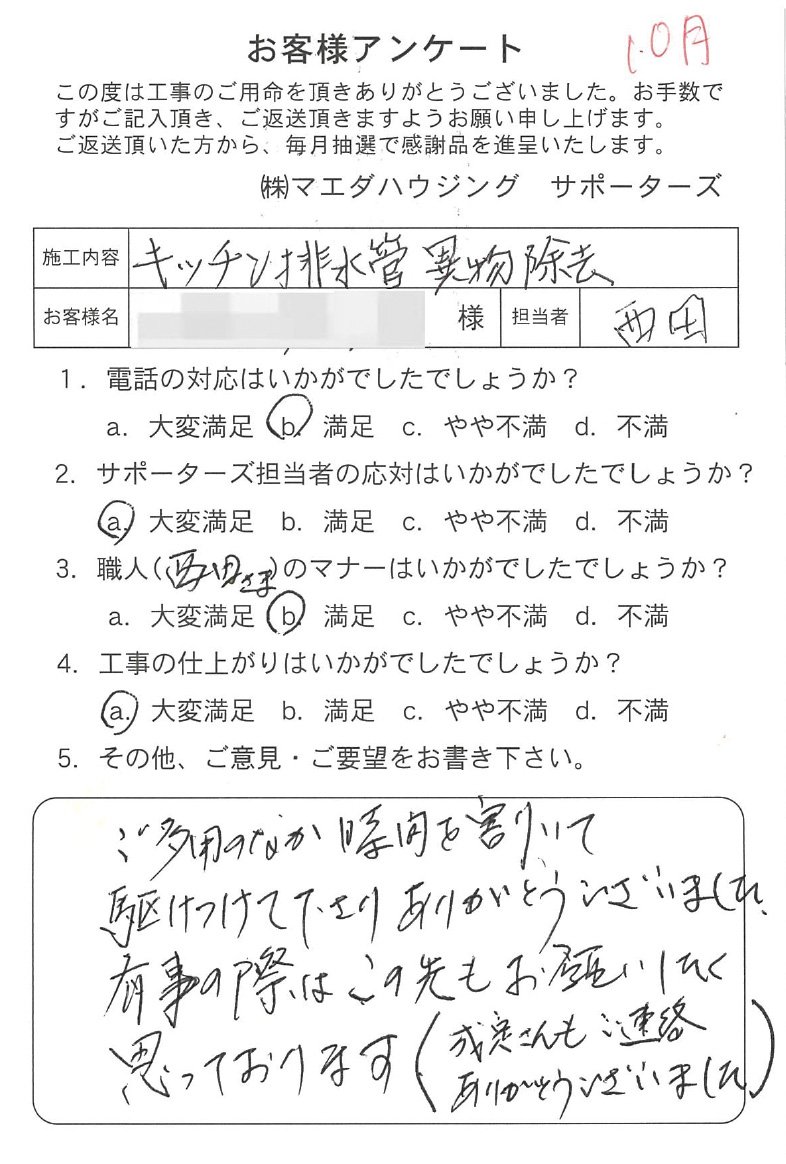 お客様アンケート
10月
この度は工事のご用命を頂きありがとうございました。お手数で
すがご記入頂き、ご返送頂きますようお願い申し上げます。
ご返送頂いた方から、毎月抽選で感謝品を進呈いたします。
㈱マエダハウジング サポーターズ
施工内容 キッチン排水管異物除去
お客様名 様 担当者 西田
1. 電話の対応はいかがでしたでしょうか？
a. 大変満足 b. 満足 c. やや不満 d. 不満
2. サポーターズ担当者の応対はいかがでしたでしょうか？
a. 大変満足 b. 満足 c. やや不満 d. 不満
3. 職人(西田さま)のマナーはいかがでしたでしょうか？
a. 大変満足 b. 満足 c. やや不満 d. 不満
4. 工事の仕上がりはいかがでしたでしょうか？
a. 大変満足 b. 満足 c. やや不満 d. 不満
5. その他、ご意見・ご要望をお書き下さい。
ご多用のなか時間を割いて
駆けつけて下さりありがとうございました。
有事の際はこの先もお願いしたく
思っております(成定さんもご連絡
ありがとうございました)